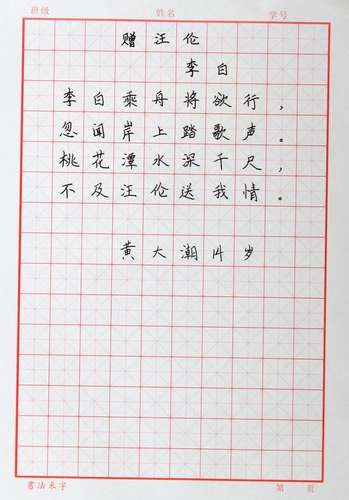 班级 姓名 学号
赠汪伦
李白
李白乘舟将欲行，
忽闻岸上踏歌声。
桃花潭水深千尺，
不及汪伦送我情。
黄大潮14岁
书法米字 第 页